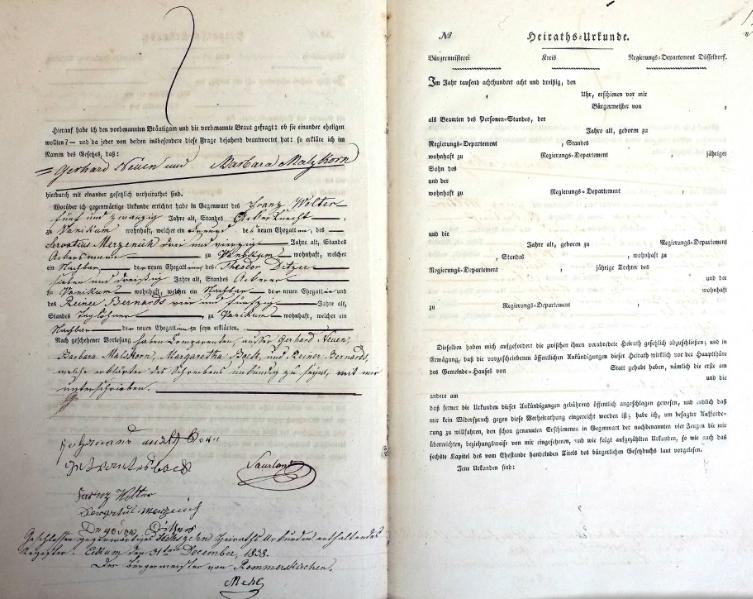 Hierauf habe ich den vorbenannten Bräutigam und die vorbenannte Braut gefragt: ob sie einander ehelichen
wollen? — und da jeder von beiden insbesondere diese Frage bejahend beantwortet hat: so erkläre ich im
Namen des Gesetzes, daß:
Gerhard Neuen und Barbara Malzkorn
hierdurch mit einander gesetzlich verheirathet sind.
Worüber ich gegenwärtige Urkunde errichtet habe in Gegenwart des Franz Wolter
fünf und zwanzig Jahre alt, Standes Ackerknecht
zu Vanikum wohnhaft, welcher ein der neuen Ehegatten, des
Servatius Merzenich drei und vierzig Jahre alt, Standes
Ackersmann zu Vanikum wohnhaft, welcher
ein Nachbar der neuen Ehegatten des Theodor
sieben und dreißig Jahre alt, Standes Ackerer
zu Vanikum wohnhaft, welcher ein Nachbar der neuen Ehegatten und
des Reiner Bernards vier und fünfzig Jahre alt,
Standes Taglöhner zu Vanikum wohnhaft, welcher ein
Nachbar der neuen Ehegatten zu seyn erklärten.
Nach geschehener Vorlesung haben Comparenten, außer Gerhard Neuen,
Barbara Malzkorn, Margaretha und Reiner Bernards,
welche erklärten des Schreibens unkündig zu seyn, mit mir
unterschrieben.
Saurland
Franz Wolter
Geschlossen gegenwärtiges Heiraths Urkunden enthaltendes
Register. Eckum den 31ten December, 1838.
Der Bürgermeister von Rommerskirchen.
№ Heiraths-Urkunde.
Bürgermeisterei Kreis Regierungs-Departement Düsseldorf.
Im Jahr tausend achthundert acht und dreißig, den
Uhr, erschienen vor mir
Bürgermeister von ,
als Beamten des Personen-Standes, der
Jahre alt, geboren zu
Regierungs-Departement , Standes
wohnhaft zu Regierungs-Departement , jähriger
Sohn des
und der
wohnhaft zu Regierungs-Departement ,
und die
Jahre alt, geboren zu Regierungs-Departement
, Standes , wohnhaft zu
Regierungs-Departement , jährige Tochter des
und der
wohnhaft
zu Regierungs-Departement ,
Dieselben haben mich aufgefordert die zwischen ihnen verabredete Heirath gesetzlich abzuschließen; und in
Erwägung, daß die vorgeschriebenen öffentlichen Ankündigungen dieser Heirath wirklich vor der Hauptthüre
des Gemeinde-Hauses von Statt gehabt haben, nämlich die erste am
und die
andere am
daß ferner die Urkunden dieser Ankündigungen gebührend öffentlich angeschlagen gewesen, und endlich daß
mir kein Widerspruch gegen diese Verheirathung eingereicht worden ist; habe ich, um besagter Aufforde-
rung zu willfahren, den schon genannten Erschienenen in Gegenwart der nachbenannten vier Zeugen die mir
überreichten, beziehungsweise von mir eingesehenen, und wie folgt aufgezählten Urkunden, so wie auch das
sechste Kapitel des vom Ehestande handelnden Titels des bürgerlichen Gesetzbuchs laut vorgelesen.
Jene Urkunden sind: